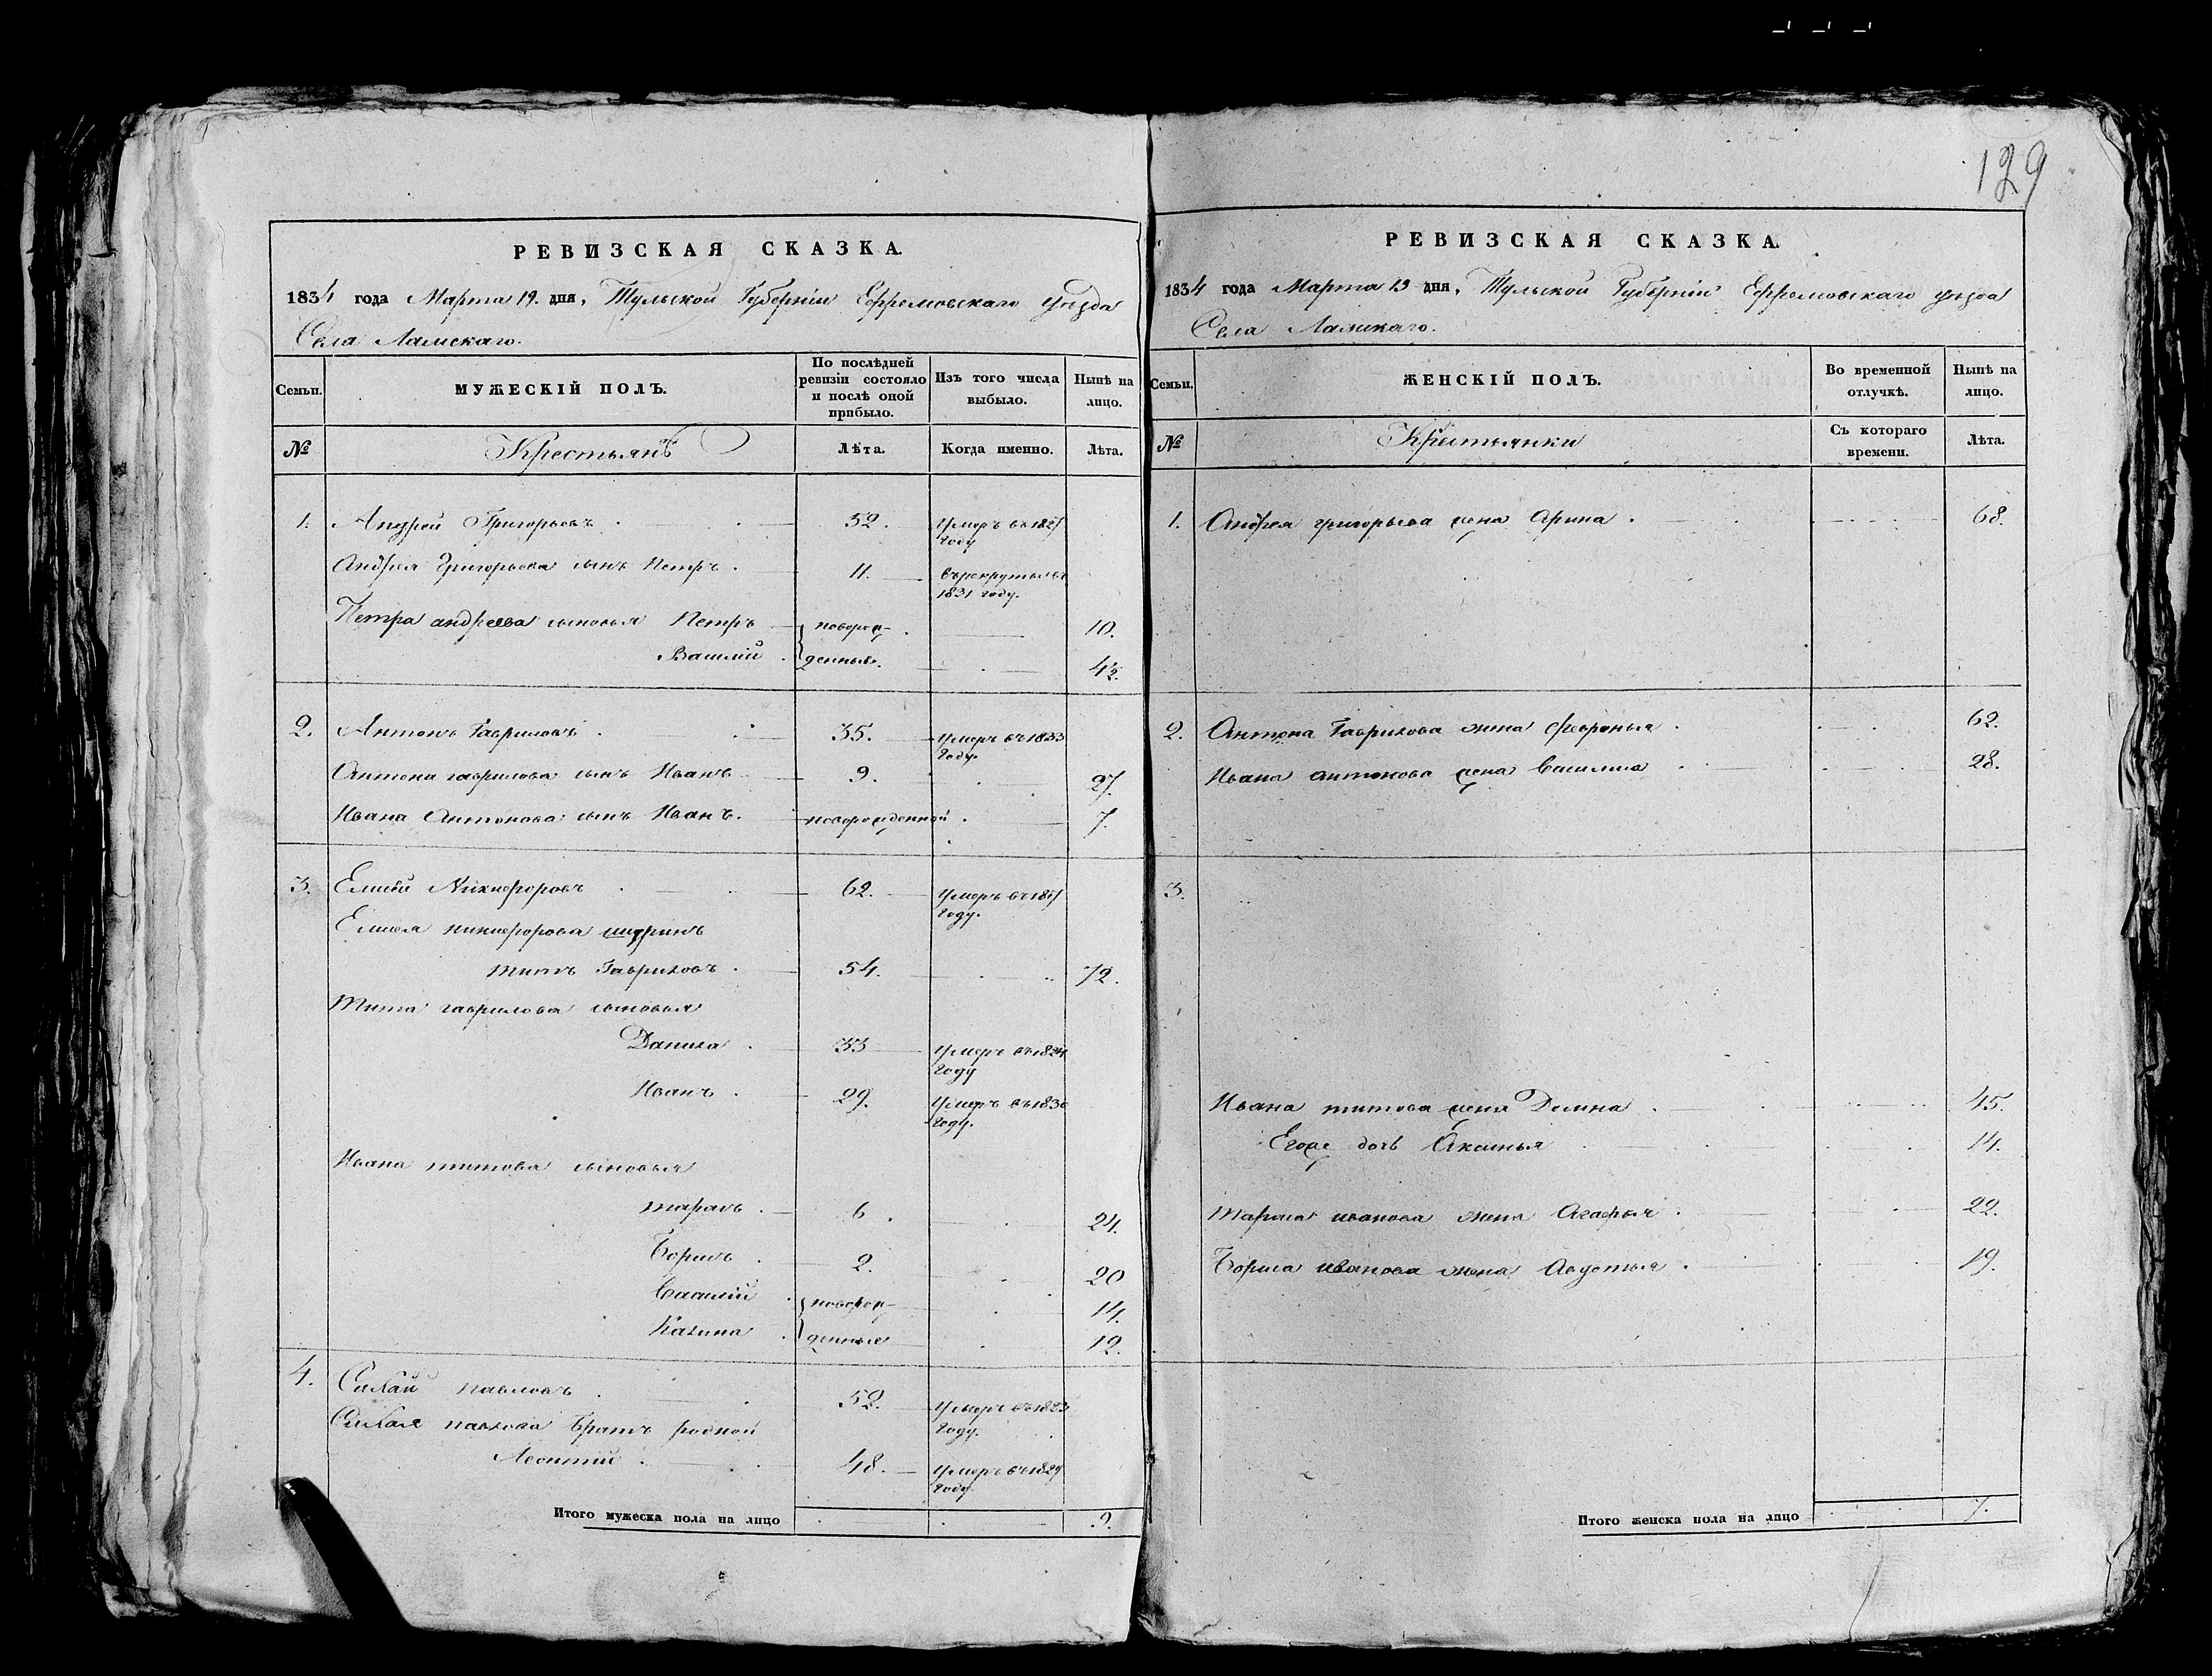 129
РЕВИЗСКАЯ СКАЗКА.
1834 года Марта 19. дня, Тульской Губерніи Ефремовскаго уѣзда
Села Ламскаго.
Семьи. МУЖЕСКІЙ ПОЛЪ. По послѣдней ревизіи состояло и послѣ оной прибыло. Изъ того числа выбыло. Нынѣ на лицо.
№ Крестьянъ Лѣта. Когда именно. Лѣта.
1. Андрей Григорьевъ 52. умеръ въ 1827 году
Андрея Григорьева сынъ Петръ 11. въ рекрутылъ 1831 году.
Петра андреева сыновья Петръ новорож- 10.
Василій денные. 4½.
2. Антонъ Гавриловъ 35. умеръ въ 1833 году.
Антона гаврилова сынъ Иванъ 9. 27.
Ивана Антонова сынъ Иванъ. новорожденной 7.
3. Елисей Никифоровъ 62. умеръ въ году.
Елисея никифорова шуринъ
титъ Гавриловъ. 54. 72.
Тита гаврилова сыновья
Данила 33 умеръ въ 1824 году
Иванъ 29. умеръ въ 1830 году.
Ивана титова сыновья
тарасъ 6. 24.
Борисъ 2. 20
Василій новорож- 14.
Калина денные 12.
4. Силай павловъ 52. умеръ въ году.
Силая павлова братъ родной
Леонтій 48. умеръ въ 1829 году.
Итого мужеска пола на лицо 9.
РЕВИЗСКАЯ СКАЗКА.
1834 года Марта 19 дня, Тульской Губерніи Ефремовскаго уѣзда
Села Ламскаго.
Семьи. ЖЕНСКІЙ ПОЛЪ. Во временной отлучкѣ. Нынѣ на лицо.
№ Крестьянки Съ котораго времени. Лѣта.
1. Андрея григорьева жена Арина 68.
2. Антона Гаврилова жена Февронья 62.
Ивана антонова жена Василиса 28.
3.
Ивана титова жена Домна 45.
Егоже дочь Аксинья 14.
тараса иванова жена Агафья 22.
Бориса иванова жена Авдотья 19.
Итого женска пола на лицо 7.